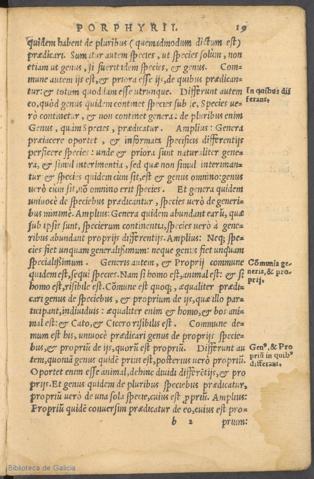 PORPHYRII. 19
quidem habent de pluribus (quemadmodum dictum est)
prædicari. Sumatur autem species, ut species solùm, non
etiam ut genus, si fuerit idem species, & genus. Com
mune autem ijs est, & priora esse ijs, de quibus prædican-
tur: & totum quoddam esse utrunque. Differunt autem
In quibus dif
ferant.
eo, quòd genus quidem continet species sub se. Species ue-
rò continetur, & non continet genera: de pluribus enim
Genus, quàm Species, prædicatur. Amplius: Genera
præiacere oportet, & informata specificis differentijs
perficere species: unde & priora sunt naturaliter gene-
ra, & simul interimentia, sed quæ non simul interiman-
tur & species quidem cùm sit, est & genus omnino: genus
uerò cùm sit, nõ omnino erit species. Et genera quidem
uniuocè de speciebus prædicantur, species uerò de generi-
bus minimè. Amplius: Genera quidem abundant earũ, quæ
sub ipsis sunt, specierum continentia, species uerò à gene-
ribus abundant proprijs differentijs. Amplius: Neq; spe-
cies fiet unquam generalissimum: neque genus fiet unquam
specialissimum. Generis autem, & Proprij commune
Cõmunia ge
neris, & pro-
prij.
quidem est, sequi species. Nam si homo est, animal est: & si
homo est, risibile est. Cõmune est quoq;, æqualiter prædi-
cari genus de speciebus, & proprium de ijs, quæ illo par-
ticipant, indiuiduis: æqualiter enim & homo, & bos ani-
mal est: & Cato, & Cicero risibilis est. Commune de-
mum est his, uniuocè prædicari genus de proprijs specie-
bus, & propriũ de ijs, quorũ est propriũ. Differunt au
Genꝰ, & Pro
priũ in quibꝰ
differant.
tem, quoniã genus quidẽ prius est, posterius uerò propriũ.
Oportet enim esse animal, dehinc diuidi differẽtijs, & pro
prijs. Et genus quidem de pluribus speciebus prædicatur,
propriũ uerò de una sola specie, cuius est ꝓpriũ. Amplius:
Propriũ quidẽ conuersim prædicatur de eo, cuius est pro-
b 2 prium:
Biblioteca de Galicia